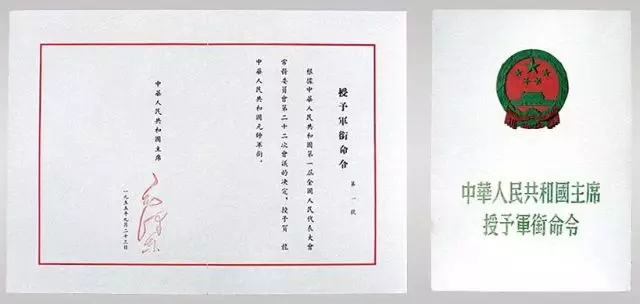 授予軍銜命令
第一號
根據中華人民共和國第一屆全國人民代表大會
常務委員會第二十二次會議的决定，授予賀 龍
中華人民共和國元帥軍銜。
中華人民共和國主席
毛澤東
一九五五年九月二十三日
中華人民共和國主席
授予軍銜命令